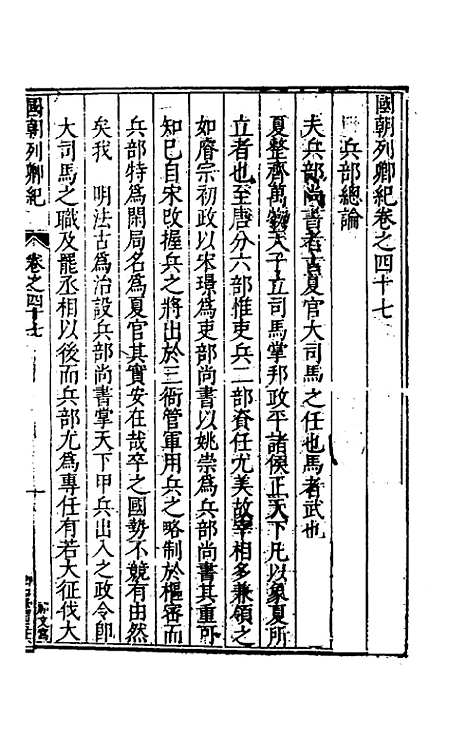 國朝列卿紀卷之四十七
兵部總論
夫兵部尚書者古夏官大司馬之任也馬者武也
夏整齊萬物天子立司馬掌邦政平諸侯正天下凡以象夏所
立者也至唐分六部惟吏兵二部資任尤美故宰相多兼領之
如睿宗初政以宋璟為吏部尚書以姚崇為兵部尚書其重可
知已自宋改握兵之將出於三衙管軍用兵之略制於樞密而
兵部特為閑局名為夏官其實安在哉卒之國勢不競有由然
矣我　明法古為治設兵部尚書掌天下甲兵出入之政令即
大司馬之職及罷丞相以後而兵部尤為專任有若大征伐大
國朝列卿紀
卷之四十七